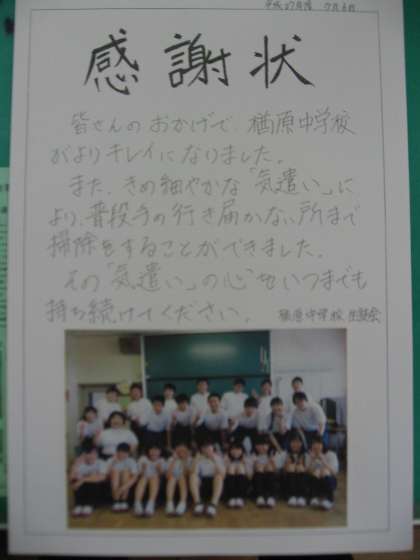 平成27年度 7月6日
感謝状
皆さんのおかげで、楢原中学校
がよりキレイになりました。
また、きめ細やかな「気遣い」に
より、普段手の行き届かない所まで
掃除をすることができました。
その「気遣い」の心をいつまでも
持ち続けてください。
楢原中学校 生徒会